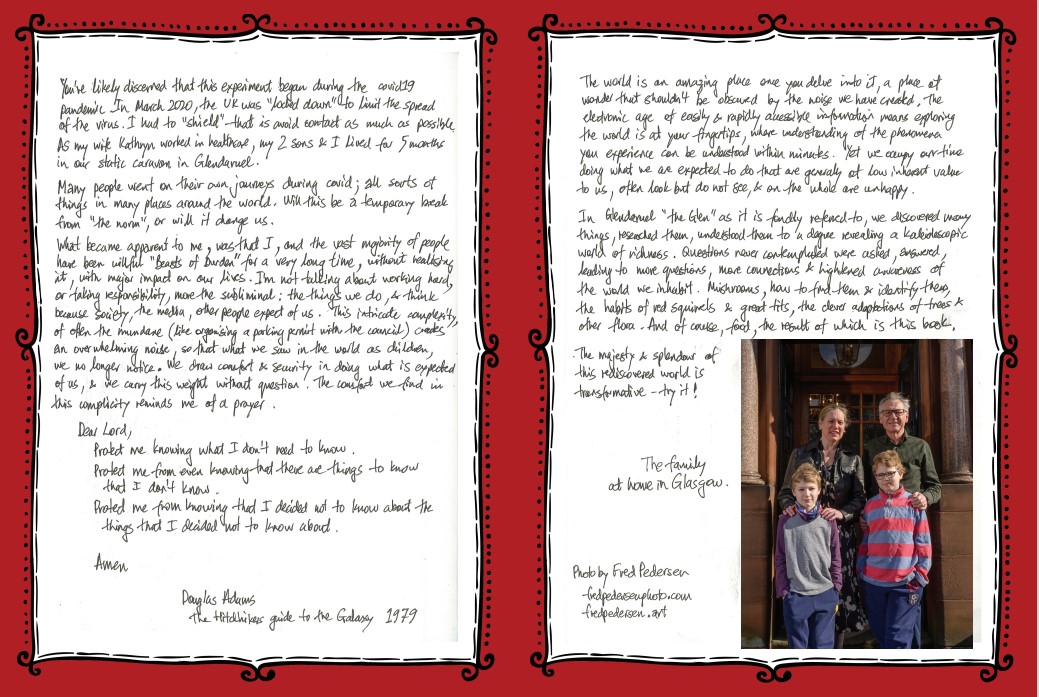 You've likely discerned that this experiment began during the covid19
pandemic. In March 2020, the UK was "locked down" to limit the spread
of the virus. I had to "shield" - that is avoid contact as much as possible.
As my wife Kathryn worked in healthcare, my 2 sons & I lived for 5 months
in our static caravan in Glendaruel.
Many people went on their own journeys during covid; all sorts of
things in many places around the world. Will this be a temporary break
from "the norm", or will it change us.
What became apparent to me, was that I, and the vast majority of people
have been willful "Beasts of Burden" for a very long time, without realising
it, with major impact on our lives. I'm not talking about working hard,
or taking responsibility, more the subliminal: the things we do, & think
because society, the media, other people expect of us. This intricate complexity,
of often the mundane (like organising a parking permit with the council) creates
an overwhelming noise, so that what we saw in the world as children,
we no longer notice. We draw comfort & security in doing what is expected
of us, & we carry this weight without question. The comfort we find in
this complicity reminds me of a prayer.
Dear Lord,
Protect me knowing what I don't need to know.
Protect me from even knowing that there are things to know
that I don't know.
Protect me from knowing that I decided not to know about the
things that I decided not to know about.
Amen
Douglas Adams
The Hitchhikers guide to the Galaxy 1979
The world is an amazing place once you delve into it, a place of
wonder that shouldn't be obscured by the noise we have created. The
electronic age of easily & rapidly accessible information means exploring
the world is at your fingertips, where understanding of the phenomena
you experience can be understood within minutes. Yet we occupy our time
doing what we are expected to do that are generally of low inherent value
to us, often look but do not see, & on the whole are unhappy.
In Glendaruel "the Glen" as it is fondly referred to, we discovered many
things, researched them, understood them to a degree revealing a kaleidoscopic
world of richness. Questions never contemplated were asked, answered,
leading to more questions, more connections & highened awareness of
the world we inhabit. Mushrooms, how to find them & identify them,
the habits of red squirrels & great tits, the clever adaptations of trees &
other flora. And of course, food, the result of which is this book.
The majesty & splendour of
this rediscovered world is
transformative - try it!
The family
at home in Glasgow.
Photo by Fred Pedersen
-fredpedersenphoto.com
-fredpedersen.art